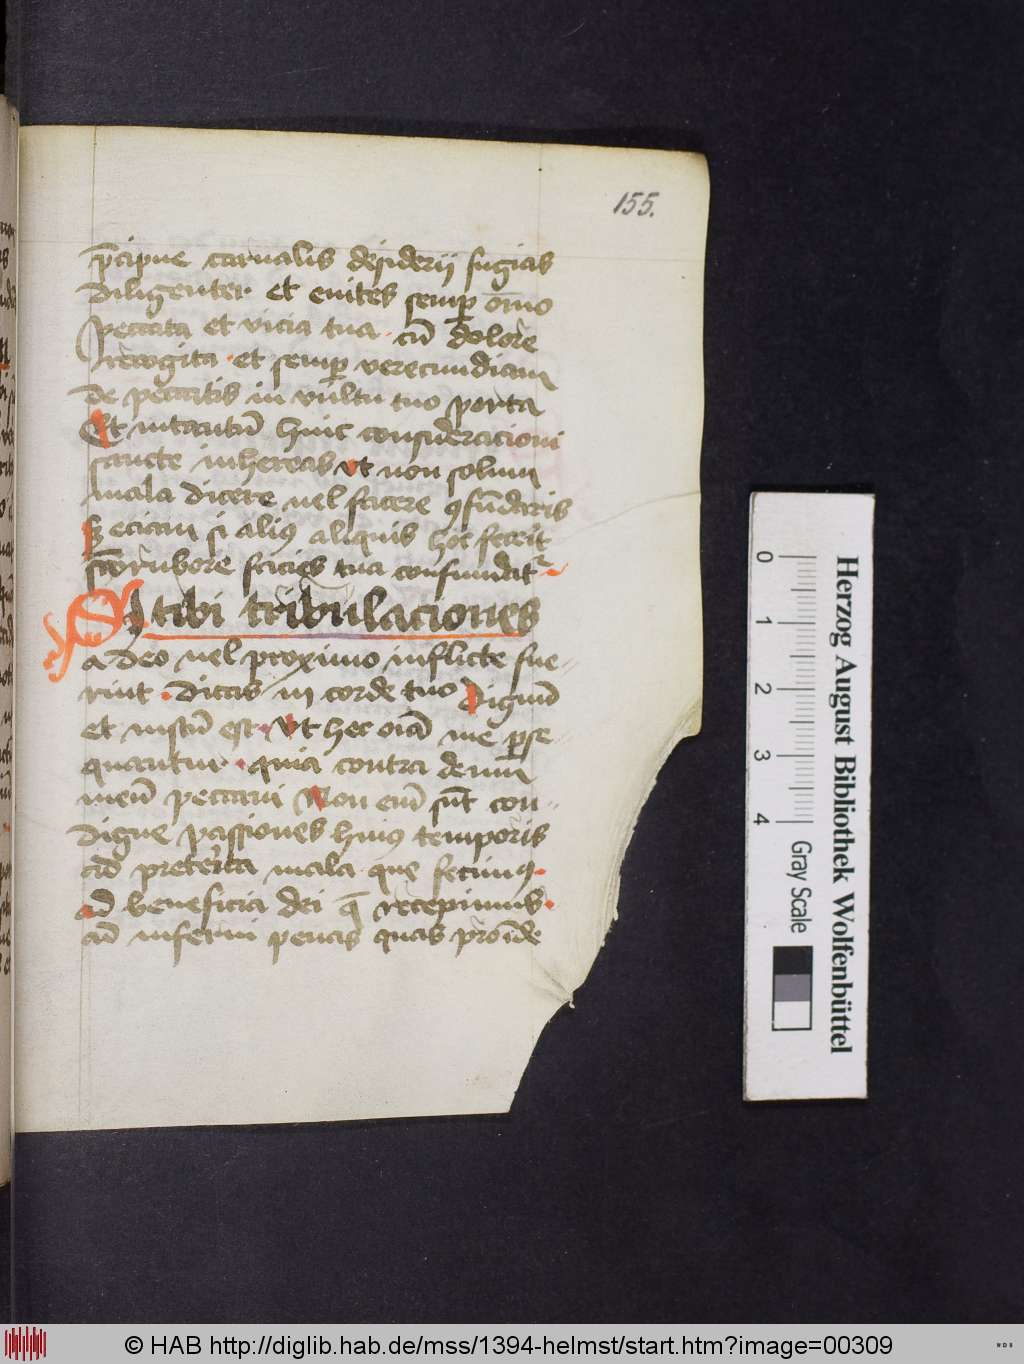 155.
p̄cipue carnalis desiderij fugias
diligenter et euites semꝑ om̄o
peccata et vicia tua cū dolore
recogita · et semꝑ verecundiam
de peccatis in vultu tuo porta
Et intantū huic consideracioni
sancte inhereas vt non solum
mala dicere uel facere ꝯfūdaris
sꝫ eciam si aliꝰ aliquis hoc fecerit
rubore facies tua confundatᷣ ·
Si tibi tribulaciones
a deo uel proximo inflicte fue-
rint · dicas in corde tuo Dignū
et iustū est · Vt hec oīa me ꝑse-
quantur · quia contra deum
meū peccaui Non em̄ sūt con-
digne passiones huiꝰ temporis
ad preterita mala que fecimꝰ ·
ad beneficia dei q̄ recepimus ·
ad inferni penas quas proīde
Herzog August Bibliothek Wolfenbüttel
0 1 2 3 4
Gray Scale
© HAB http://diglib.hab.de/mss/1394-helmst/start.htm?image=00309